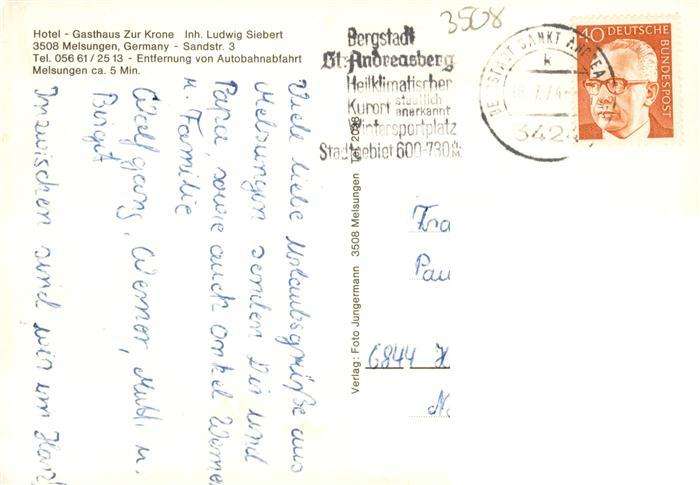 Hotel - Gasthaus Zur Krone Inh. Ludwig Siebert
3508 Melsungen, Germany - Sandstr. 3
Tel. 056 61 / 25 13 - Entfernung von Autobahnabfahrt
Melsungen ca. 5 Min.
3508
Bergstadt
St. Andreasberg
Heilklimatischer
Kurort staatlich anerkannt
Wintersportplatz
Stadtgebiet 600-730
SANKT ANDREA
k
3424
40 DEUTSCHE BUNDESPOST
Viele liebe Urlaubsgrüße aus
Melsungen senden Dir und
Papa, sowie auch Onkel Werner
u. Familie
Wolfgang, Werner, Mutti u.
Birgit
Inzwischen sind wir im Harz
Verlag: Foto Jungermann 3508 Melsungen
Fra
Pau
6844